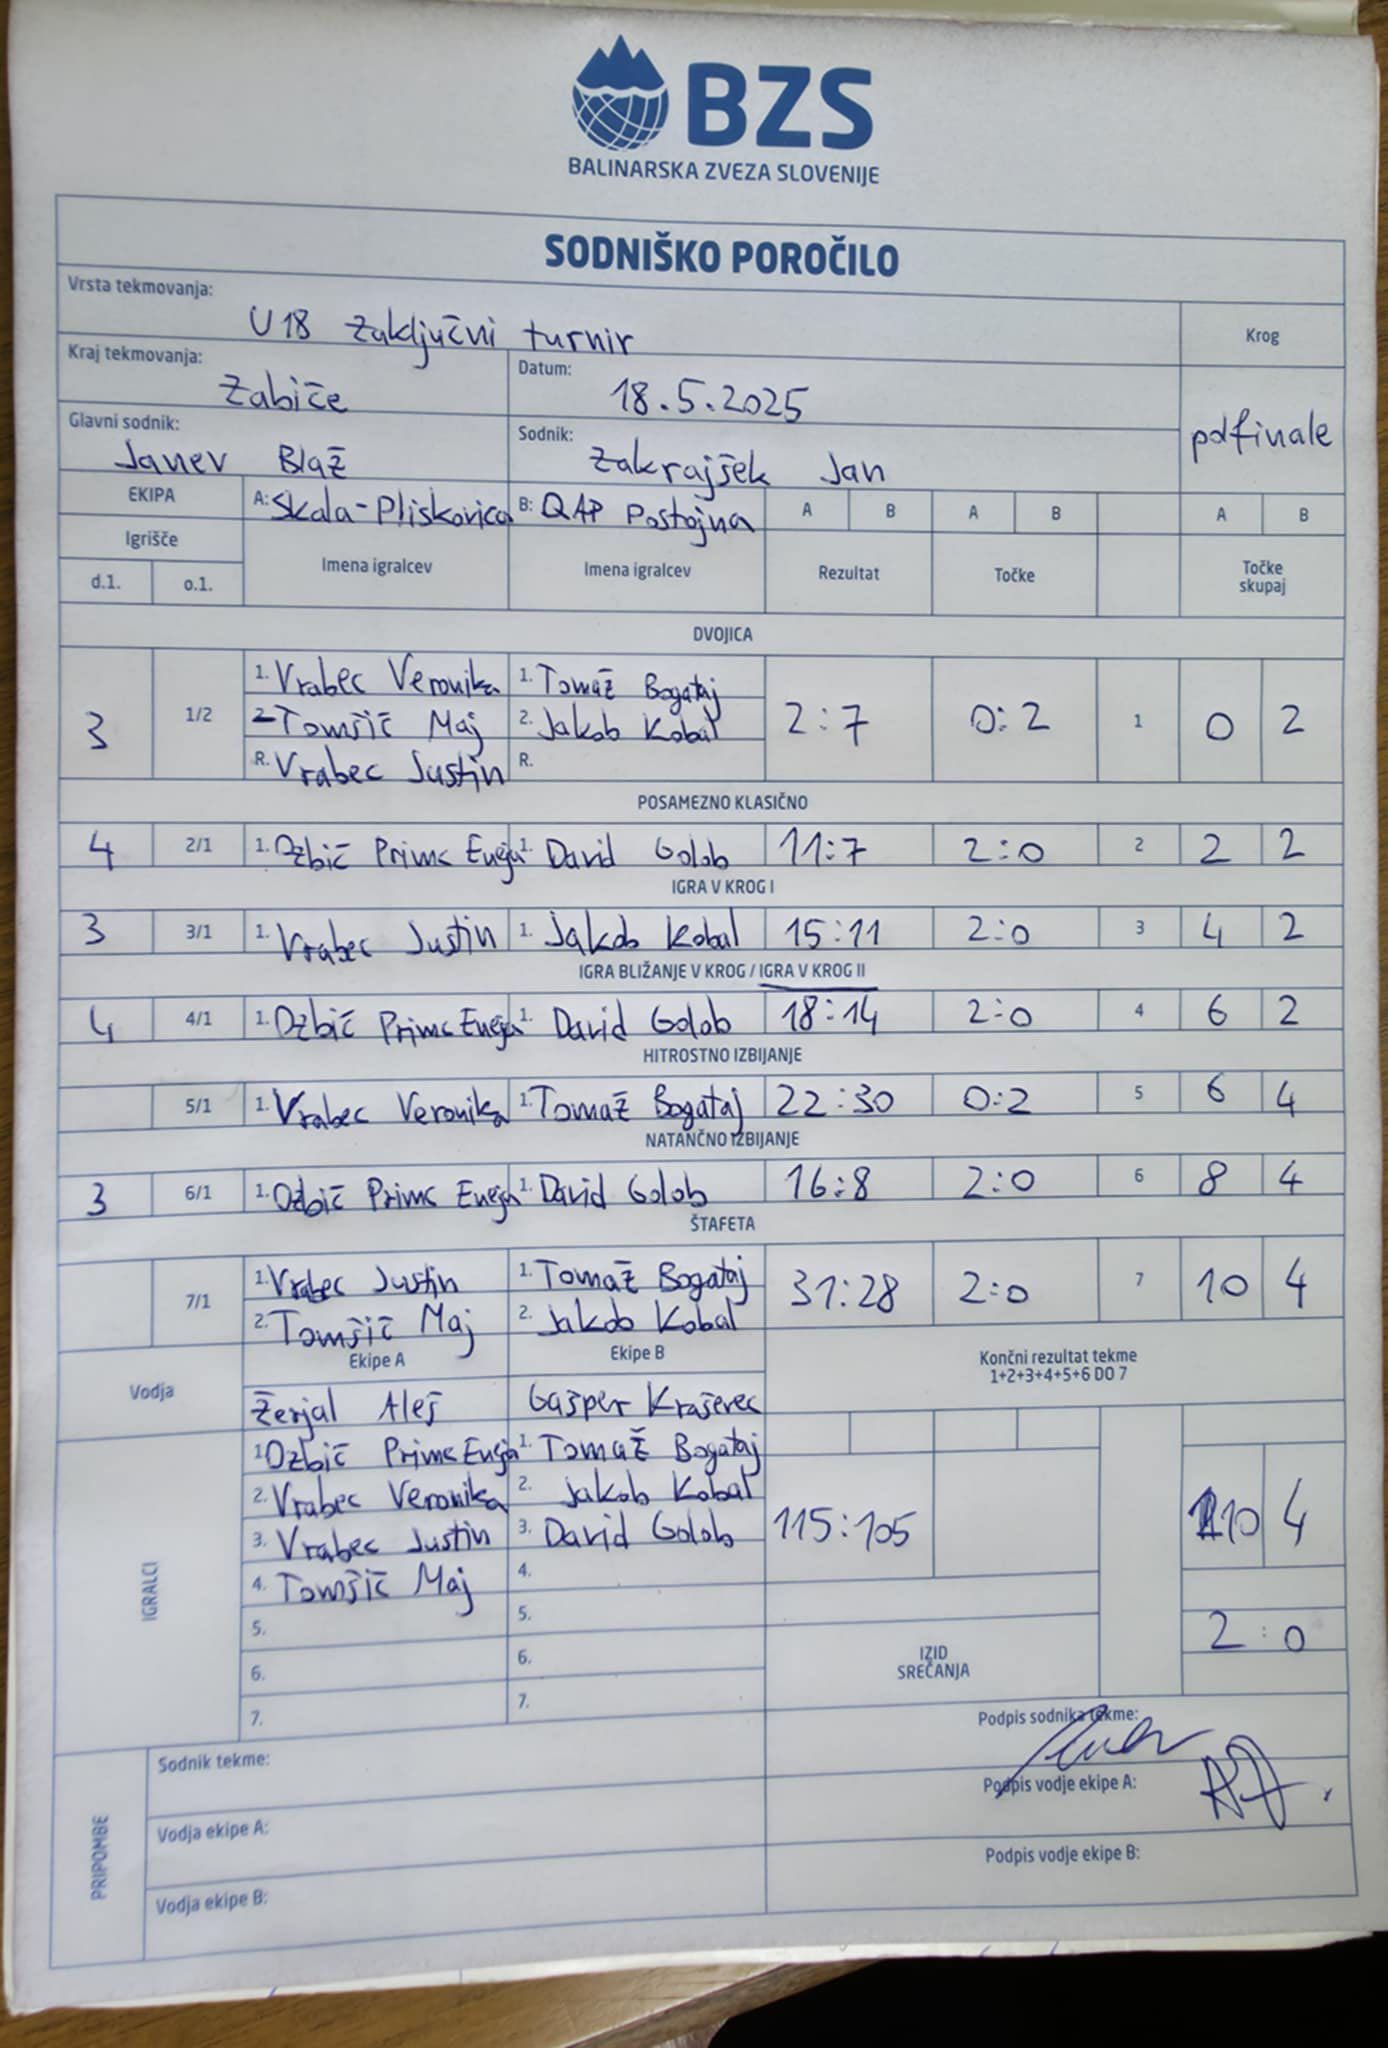 BZS
BALINARSKA ZVEZA SLOVENIJE
SODNIŠKO POROČILO
Vrsta tekmovanja: U18 zaključni turnir
Krog
Kraj tekmovanja: Zabiče Datum: 18.5.2025
polfinale
Glavni sodnik: Janev Blaž Sodnik: Zakrajšek Jan
EKIPA A: Skala-Pliskovica B: QAP Postojna A B A B A B
Igrišče Imena igralcev Imena igralcev Rezultat Točke Točke skupaj
d.1. o.1.
DVOJICA
1. Vrabec Veronika 1. Tomaž Bogataj
3 1/2 2. Tomšič Maj 2. Jakob Kobal 2:7 0:2 1 0 2
R. Vrabec Justin R.
POSAMEZNO KLASIČNO
4 2/1 1. Ozbič Primc Eneja 1. David Golob 11:7 2:0 2 2 2
IGRA V KROG I
3 3/1 1. Vrabec Justin 1. Jakob Kobal 15:11 2:0 3 4 2
IGRA BLIŽANJE V KROG / IGRA V KROG II
4 4/1 1. Ozbič Primc Eneja 1. David Golob 18:14 2:0 4 6 2
HITROSTNO IZBIJANJE
5/1 1. Vrabec Veronika 1. Tomaž Bogataj 22:30 0:2 5 6 4
NATANČNO IZBIJANJE
3 6/1 1. Ozbič Primc Eneja 1. David Golob 16:8 2:0 6 8 4
ŠTAFETA
1. Vrabec Justin 1. Tomaž Bogataj
7/1 31:28 2:0 7 10 4
2. Tomšič Maj 2. Jakob Kobal
Vodja Ekipe A Ekipe B Končni rezultat tekme
1+2+3+4+5+6 DO 7
Žerjal Aleš Gašper Kraševec
IGRALCI
1. Ozbič Primc Eneja 1. Tomaž Bogataj
2. Vrabec Veronika 2. Jakob Kobal
3. Vrabec Justin 3. David Golob 115:105 10 4
4. Tomšič Maj 4.
5. 5.
2:0
6. 6. IZID SREČANJA
7. 7.
PRIPOMBE
Sodnik tekme: Podpis sodnika tekme:
Vodja ekipe A: Podpis vodje ekipe A:
Vodja ekipe B: Podpis vodje ekipe B: